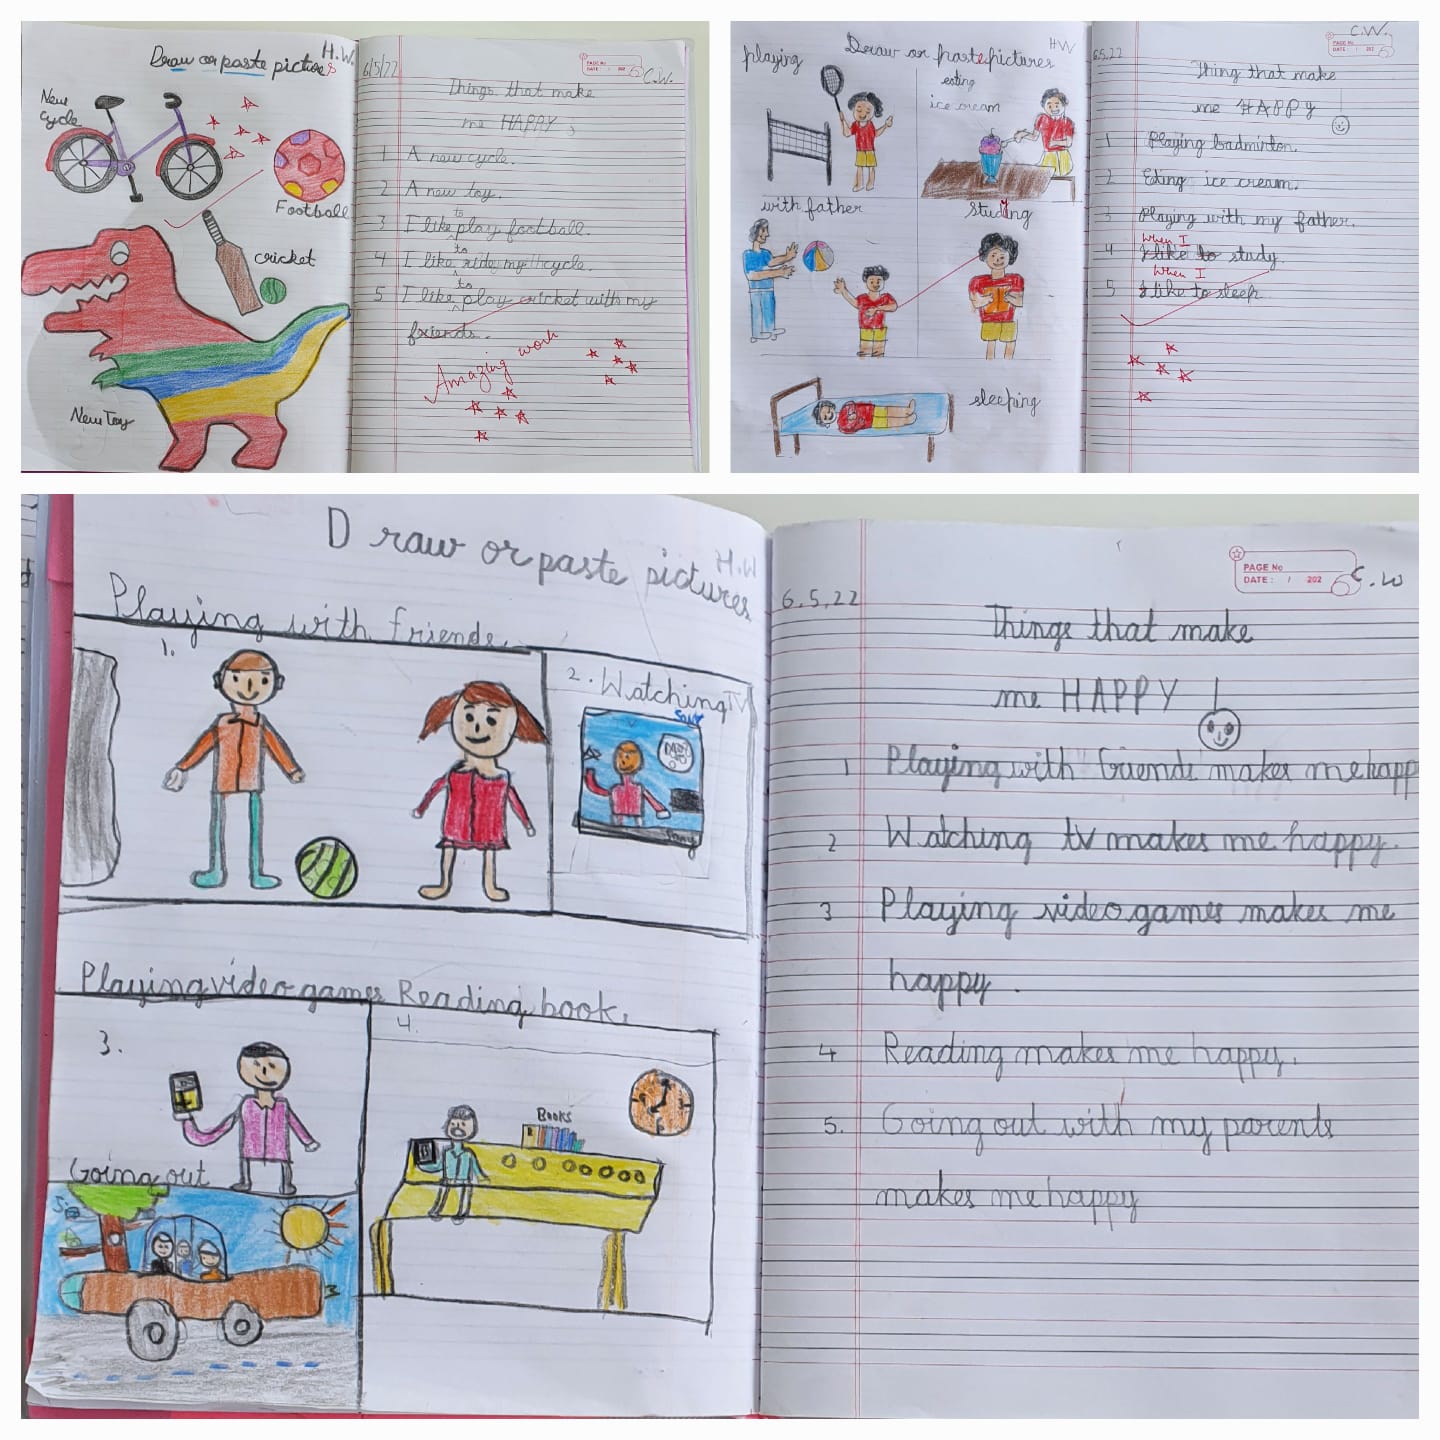 Draw or paste pictures
H.W.
New
Cycle
Football
cricket
New Toy
6/5/22
PAGE No
DATE : / 202
C.W.
Things that make
me HAPPY
1 A new cycle.
2 A new toy.
to
3 I like play football.
to
4 I like ride my cycle.
to
5 I like play cricket with my
friends.
Amazing work
Draw or paste pictures
HW
playing
eating
ice cream
with father
studying
sleeping
6.5.22
C.W.
PAGE No
DATE : / 202
Thing that make
me HAPPY !
1 Playing badminton.
2 Eting ice cream.
3 Playing with my father.
When I
4 I like to study.
When I
5 I like to sleep.
Draw or paste pictures
H.W
Playing with friends.
1.
2. Watching TV
Sony
Playing video games
3.
Reading book.
4.
BOOKS
Going out
6.5.22
PAGE No
DATE : / 202
C.W
Things that make
me HAPPY !
1 Playing with friends makes me happ
2 Watching tv makes me happy.
3 Playing video games makes me
happy.
4 Reading makes me happy.
5. Going out with my parents
makes me happy